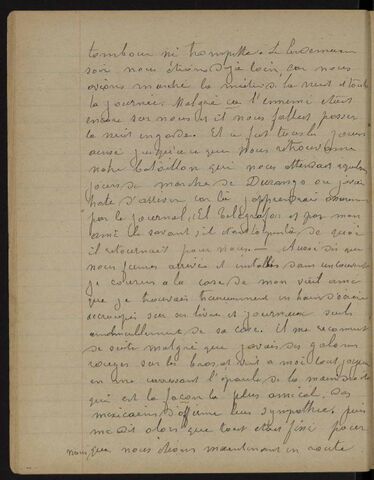 tambour ni trompette. Le lendemain
soir nous étions déjà loin, car nous
avions marché la moitié de la nuit et toute
la journée. Malgré ça l'ennemi était
encore sur nous et il nous fallut passer
la nuit en garde. Et ce fut tous les jours
ainsi jusqu'à ce que nous retrouvâmes
notre bataillon qui nous attendait
jours de marche de Durango où j'avais
hâte d'arriver car là j'apprendrais
par le journal, El Telégrafo et par mon
ami le savant, s'il était de quoi
il retournait pour nous — Aussi dès que
nous fumes arrivés et installés dans un couvent
je courus à la case de mon vieil ami
que je trouvais tranquillement en train
au milieu de ses livres et journaux seuls
de sa case. Il me reconnut
de suite malgré que j'avais des galons
rouges sur les bras, et vint à moi tout joyeux
en me caressant l'épaule de la main droite
qui est la façon la plus amical des
mexicains d'affirmer leur sympathie. puis
me dit alors que tout était fini pour
nous, que nous étions maintenant en route